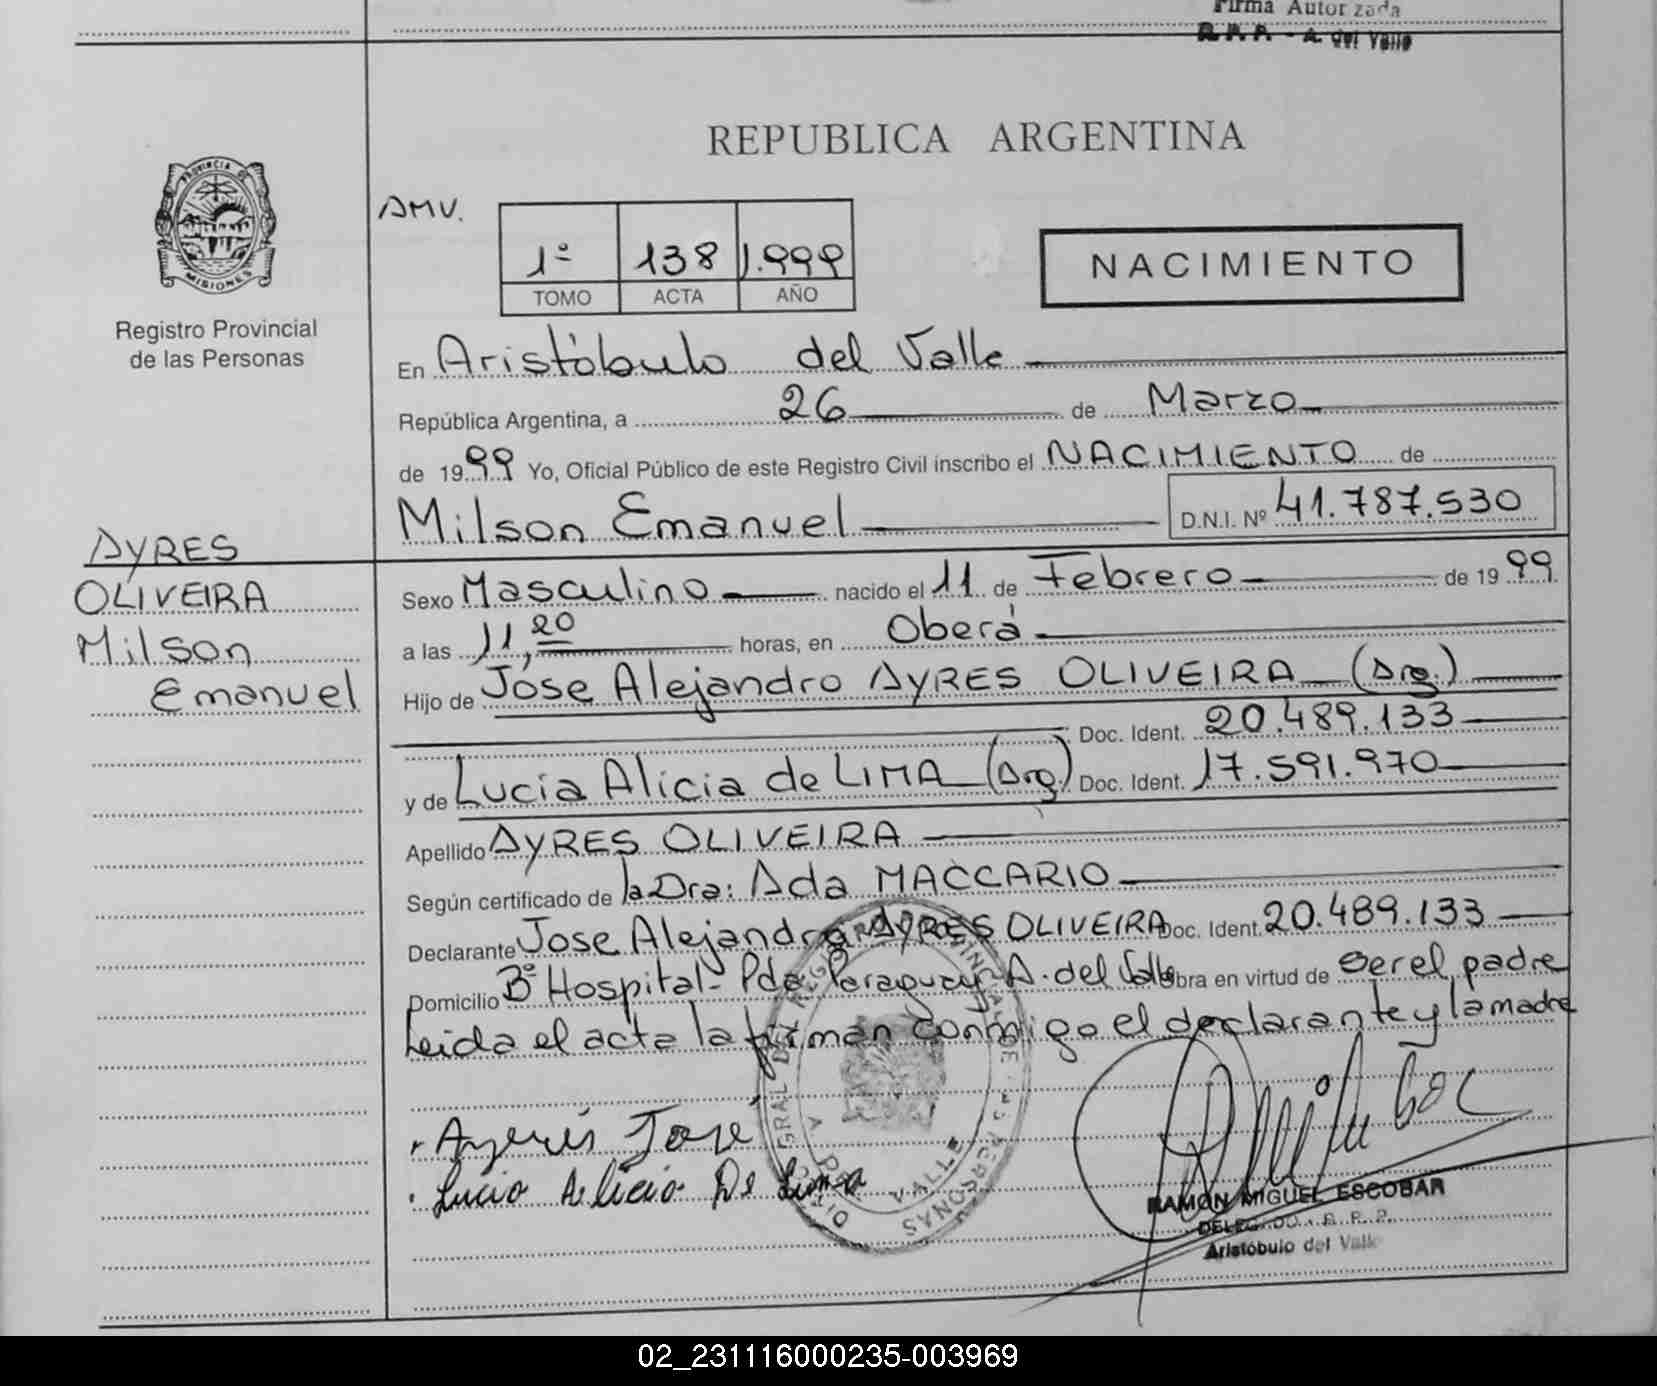 Firma Autorizada
R.P.P. - A. del Valle
REPUBLICA ARGENTINA
PROVINCIA DE
MISIONES
Registro Provincial
de las Personas
AMV.
1º 138 1.999
TOMO ACTA AÑO
NACIMIENTO
En Aristóbulo del Valle
República Argentina, a 26 de Marzo
de 1999 Yo, Oficial Público de este Registro Civil inscribo el NACIMIENTO de
Milson Emanuel D.N.I. Nº 41.787.530
AYRES
OLIVEIRA
Milson
Emanuel
Sexo Masculino nacido el 11 de Febrero de 1999
a las 11,20 horas, en Oberá
Hijo de Jose Alejandro AYRES OLIVEIRA (Arg.)
Doc. Ident. 20.489.133
y de Lucia Alicia de LIMA (Arg.) Doc. Ident. 17.591.970
Apellido AYRES OLIVEIRA
Según certificado de la Dra: Ada MACCARIO
Declarante Jose Alejandro AYRES OLIVEIRA Doc. Ident. 20.489.133
Domicilio Bº Hospital - Pde Paraguay A. del Valle Obra en virtud de ser el padre
Leida el acta la firman conmigo el declarante y la madre
Ayres José
Lucia Alicia De Lima
RAMON MIGUEL ESCOBAR
DELEGADO R.P.P.
Aristóbulo del Valle
02_231116000235-003969